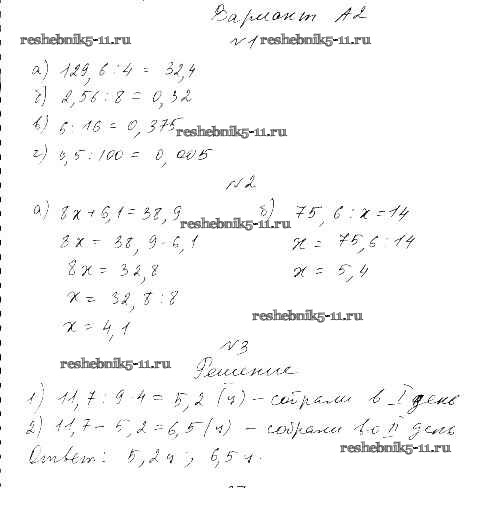 Вариант А2
reshebnik5-11.ru №1 reshebnik5-11.ru
а) 129,6 : 4 = 32,4
б) 2,56 : 8 = 0,32
в) 6 : 16 = 0,375 reshebnik5-11.ru
г) 0,5 : 100 = 0,005
№2
а) 8x + 6,1 = 38,9 б) 75,6 : x = 14
reshebnik5-11.ru
8x = 38,9 - 6,1 x = 75,6 : 14
8x = 32,8 x = 5,4
x = 32,8 : 8
reshebnik5-11.ru
x = 4,1
№3
reshebnik5-11.ru Решение
1) 11,7 : 9 · 4 = 5,2 (ц) – собрали в I день
2) 11,7 – 5,2 = 6,5 (ц) – собрали во II день
reshebnik5-11.ru
Ответ: 5,2 ц; 6,5 ц.